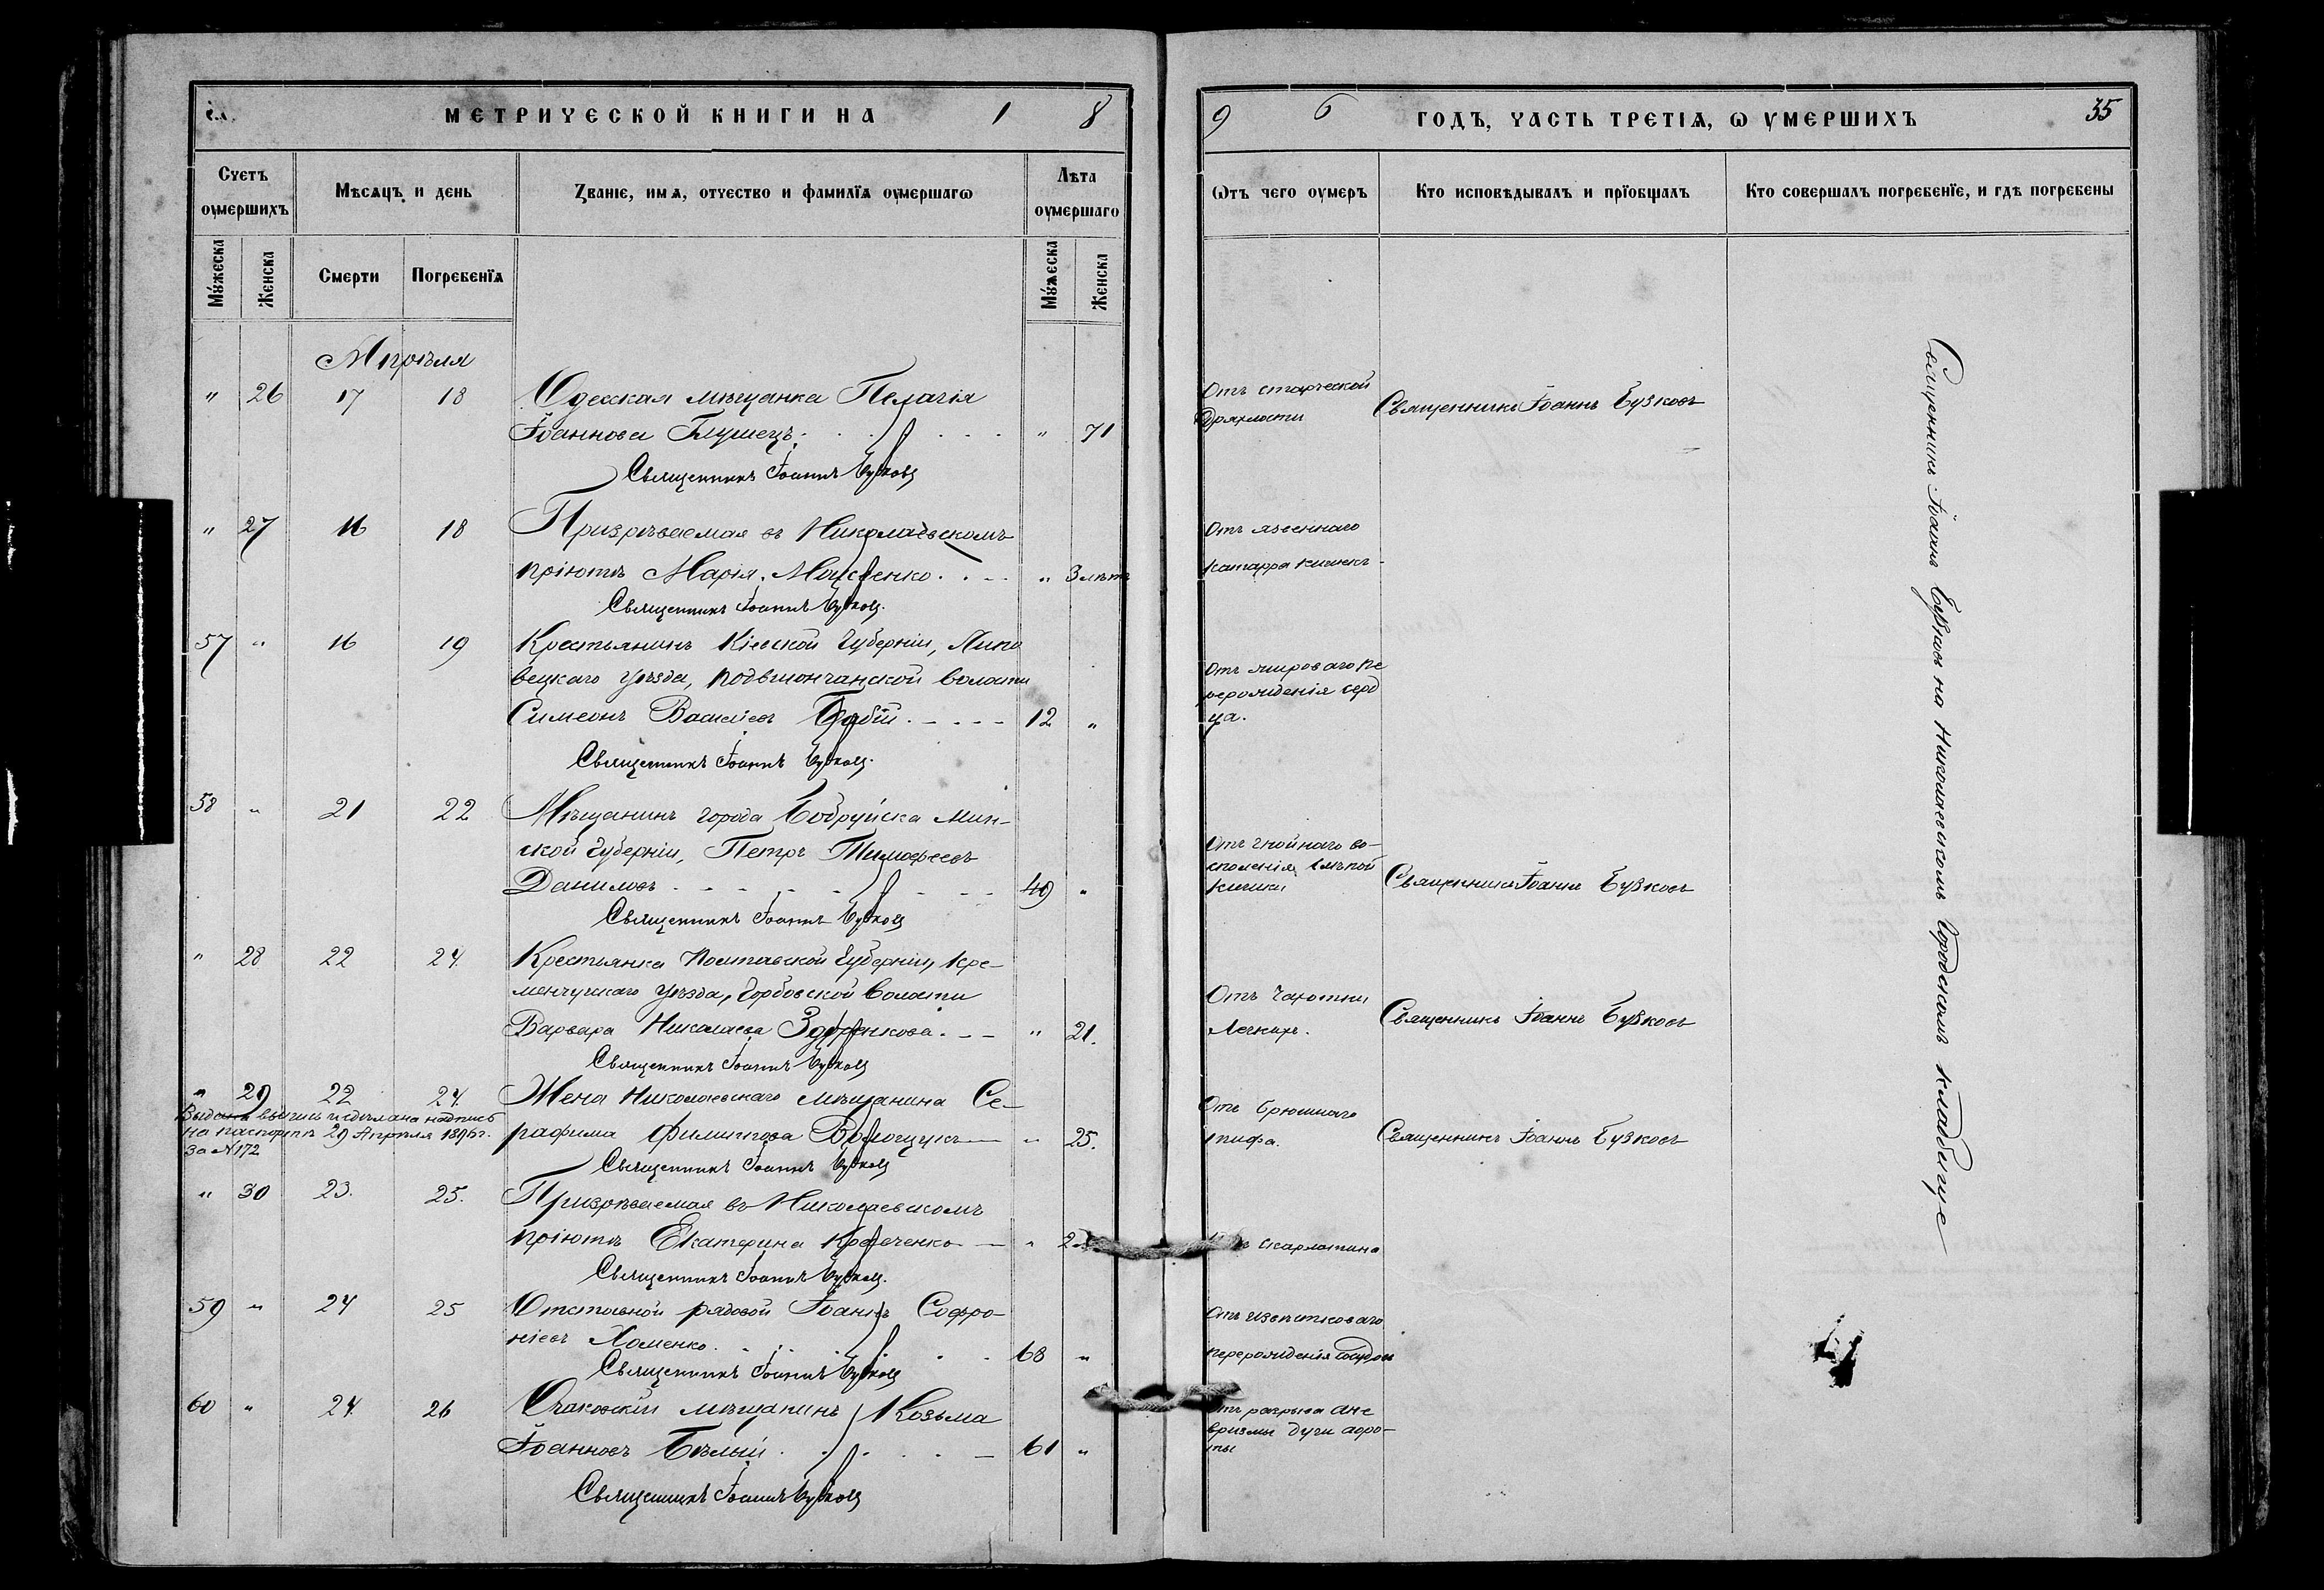 МЕТРИЧЕСКОЙ КНИГИ НА 1 8
9 6 ГОДЪ, ЧАСТЬ ТРЕТІѦ, Ѡ УМЕРШИХЪ 35
Счетъ оумершихъ
Мѣсѧцъ и день
Званіе, имѧ, отчество и фамилїѧ оумершагѡ
Лѣта оумершаго
Ѿтъ чего оумеръ
Кто исповѣдывалъ и прїобщалъ
Кто совершалъ погребенїе, и гдѣ погребены
Мꙋжеска
Женска
Смерти
Погребенїѧ
Мꙋжеска
Женска
Апрѣля
" 26 17 18 Одесская мѣщанка Пелагія
Іоаннова Глушецъ " 71
Отъ старческой
дряхлости
Священникъ Іоаннъ Бузковъ
Священникъ Іоаннъ Бузковъ
" 27 16 18 Призрѣваемая въ Николаевскомъ
пріютѣ Марія Моисеенко " 3 лѣтъ
Отъ язвеннаго
катарра кишекъ
Священникъ Іоаннъ Бузковъ
57 " 16 19 Крестьянинъ Кіевской губерніи, Липо
вецкаго уѣзда, Подвысочанской волости
Симеонъ Василіевъ Бабій 12 "
Отъ жироваго пе
рерожденія серд
ца.
Священникъ Іоаннъ Бузковъ
58 " 21 22 Мѣщанинъ города Бобруйска Мин-
ской губерніи, Петръ Тимофеевъ
Даниловъ 49 "
Отъ гнойнаго во-
споленія слѣпой
кишки
Священникъ Іоаннъ Бузковъ
Священникъ Іоаннъ Бузковъ
" 28 22 24 Крестьянка Полтавской губерніи, Кре-
менчугскаго уѣзда, Горбовской волости
Варвара Николаева " 21.
Отъ чахотки
легкихъ.
Священникъ Іоаннъ Бузковъ
Священникъ Іоаннъ Бузковъ
" 29 22 24 Жена Николаевскаго мѣщанина Се-
рафима Филиппова " 25.
Выдана выпись и сдѣлана надпись
на паспортѣ 29 Апрѣля 1896 г.
за № 172
Отъ брюшнаго
тифа.
Священникъ Іоаннъ Бузковъ
Священникъ Іоаннъ Бузковъ
" 30 23. 25. Призрѣваемая въ Николаевскомъ
пріютѣ Екатерина " 2
скарлатина
Священникъ Іоаннъ Бузковъ
59 " 24 25 Отставной рядовой Іоаннъ Софро-
ніевъ Хоменко 68 "
Отъ известковаго
перерожденія сосудовъ
Священникъ Іоаннъ Бузковъ
60 " 24 26 Очаковскій мѣщанинъ Козьма
Іоанновъ Бѣлый 61 "
Отъ разрыва ане
вризмы дуги аор-
ты
Священникъ Іоаннъ Бузковъ
Священникъ Іоаннъ Бузковъ на Николаевскомъ городскомъ кладбище